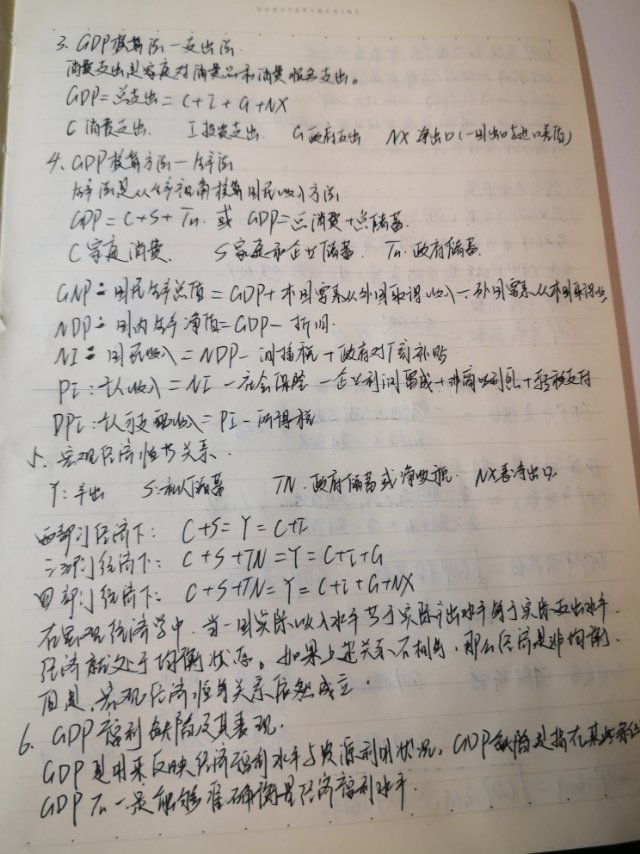 3. GDP核算法一支出法.
消费支出是家庭对消费品和消费服务支出。
GDP=总支出=C+I+G+NX
C 消费支出. I 投资支出 G 政府支出 NX 净出口(一国出口与进口差值)
4. GDP核算方法一分配法
GDP=C+S+Tn. 或 GDP=总消费+总储蓄.
C 家庭消费. S 家庭和企业储蓄. Tn. 政府储蓄.
GNP=国民生产总值=GDP+本国要素从外国取得收入一外国要素从本国取得收入
NDP=国内生产净值=GDP-折旧.
NI=国民收入=NDP-间接税+政府对厂商补贴
PI:个人收入=NI-社会保险-企业利润留成+非商业利息+转移支付
DPI:个人可支配收入=PI-所得税
5. 宏观经济恒等关系.
Y:产出 S:私人储蓄 TN.政府储蓄或净收税. NX表净出口.
两部门经济下: C+S=Y=C+I
三部门经济下: C+S+TN=Y=C+I+G
四部门经济下: C+S+TN=Y=C+I+G+NX
在宏观经济学中,当一国实际收入水平等于实际产出水平等于实际支出水平.
经济就处于均衡状态。如果上述关系不相等,那么经济是非均衡.
但是,宏观经济恒等关系依然成立.
6. GDP福利缺陷及其表现.
GDP是用来反映经济福利水平与资源利用状况。GDP缺陷是指在某些条件下
GDP不一定能够准确衡量经济福利水平.